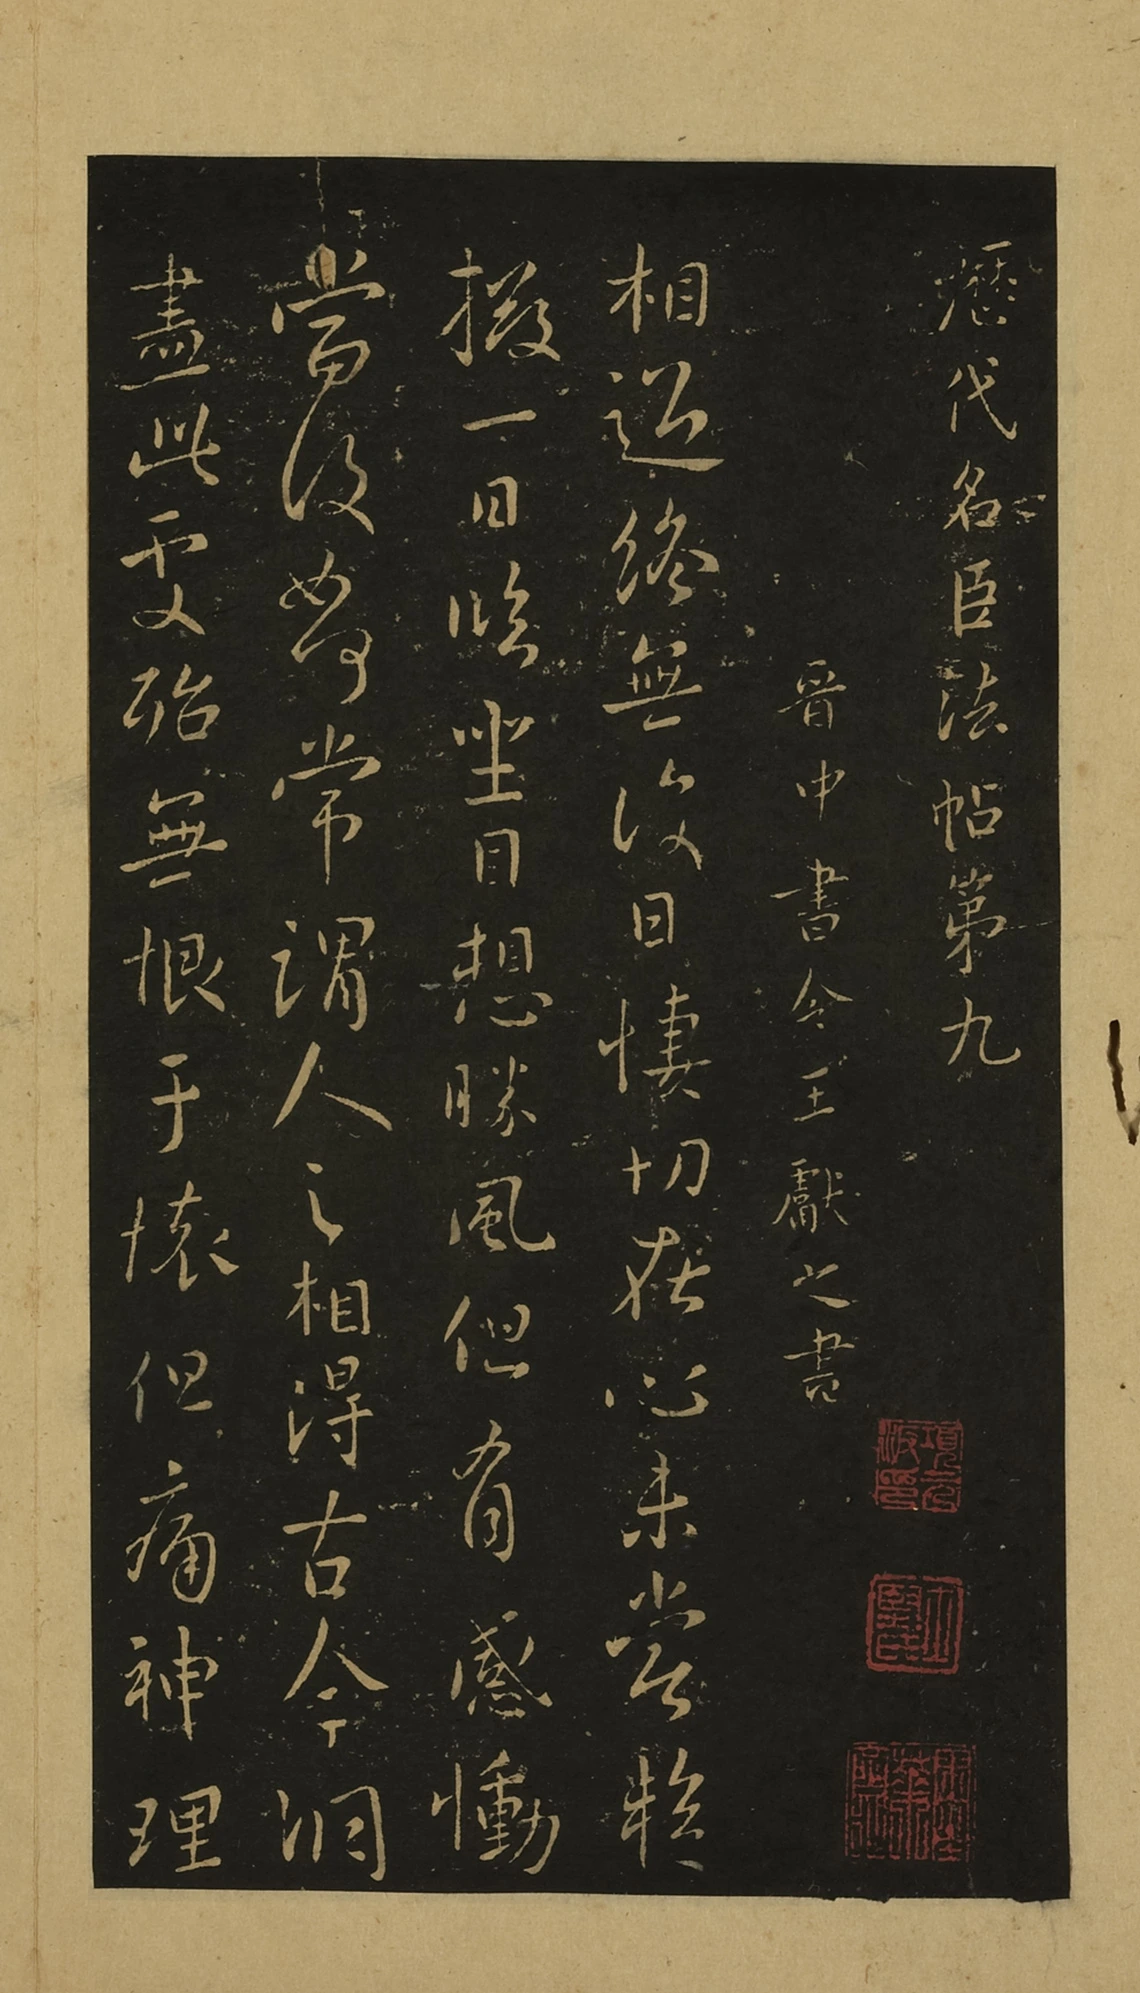 歷代名臣法帖第九
晉中書令王獻之書
相過終無復日悽切在心未嘗暫
掇一日臨坐目想勝風但有感慟
當復如何常謂人之相得古今洞
盡此處殆無恨于懷但痛神理
項元汴印